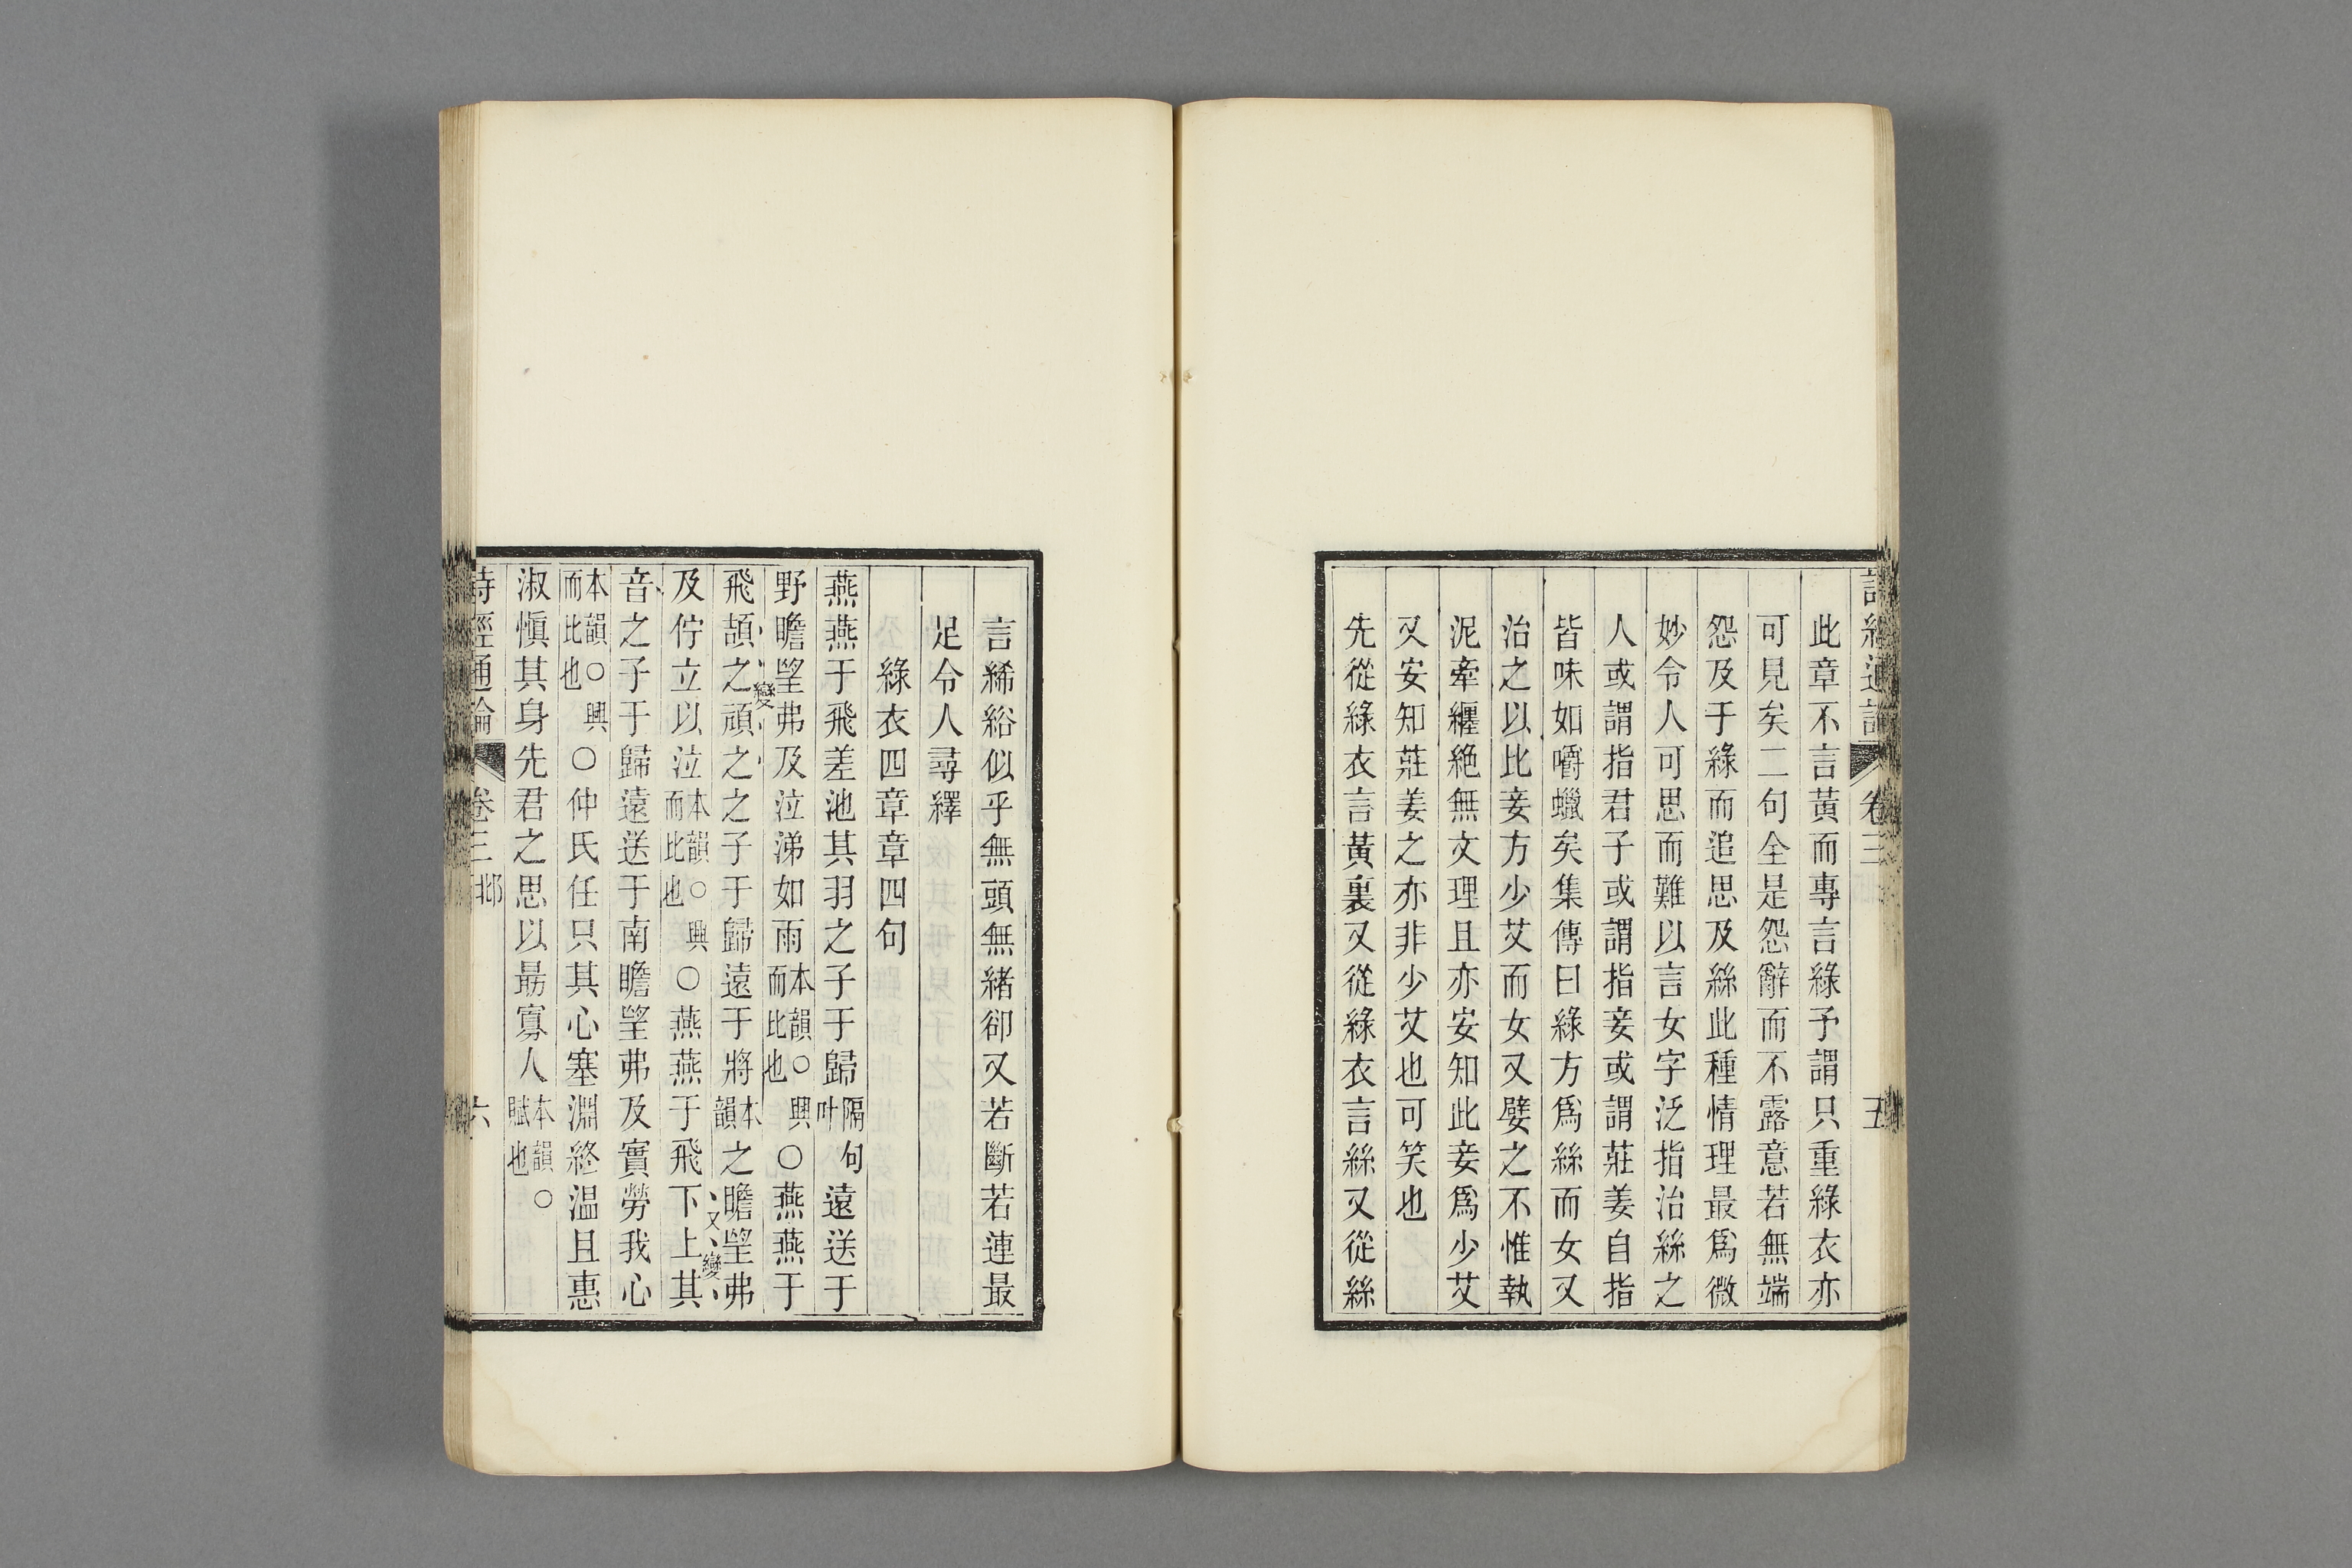 詩經通論 卷三 五
此章不言黃而專言綠予謂只重綠衣亦
可見矣二句全是怨辭而不露意若無端
怨及于綠而追思及絲此種情理最爲微
妙令人可思而難以言女字泛指治絲之
人或謂指君子或謂指妾或謂莊姜自指
皆味如嚼蠟矣集傳曰綠方爲絲而女又
治之以比妾方少艾而女又嬖之不惟執
泥牽纏絶無文理且亦安知此妾爲少艾
又安知莊姜之亦非少艾也可笑也
先從綠衣言黃裏又從綠衣言絲又從絲
言絺綌似乎無頭無緒卻又若斷若連最
足令人尋繹
綠衣四章章四句
燕燕于飛差池其羽之子于歸隔句叶遠送于
野瞻望弗及泣涕如雨本韻○興而比也○燕燕于
飛頡之頏之之子于歸遠于將本韻之瞻望弗
變
及佇立以泣本韻○興而比也○燕燕于飛下上其
又變
音之子于歸遠送于南瞻望弗及實勞我心
本韻○興而比也○仲氏任只其心塞淵終温且惠
淑愼其身先君之思以勗寡人本韻○賦也
詩經通論 卷三 邶 六